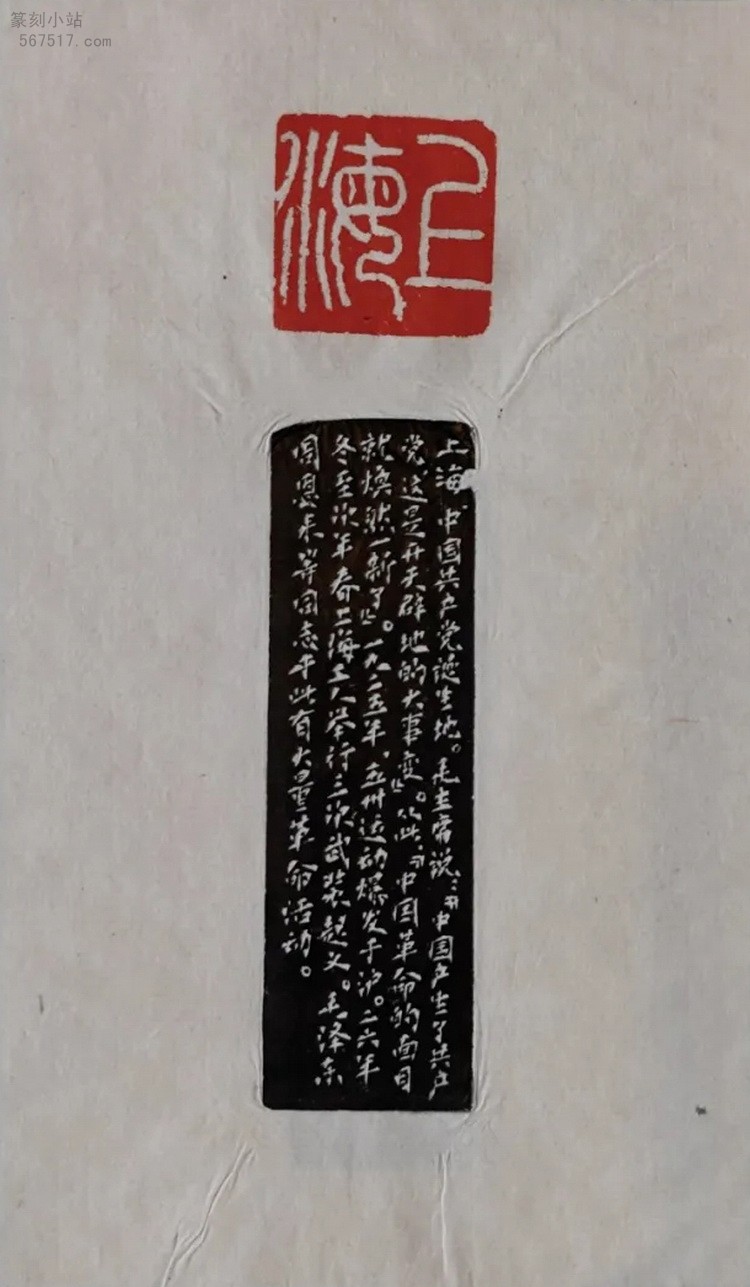 篆刻小站
567517.com
上海
上海，中国共产党诞生地。毛主席说：“中国产生了共产
党，这是开天辟地的大事变”。从此，“中国革命的面目
就焕然一新了”。一九二五年，五卅运动爆发于沪。二六年
冬至次年春上海工人举行三次武装起义。毛泽东
周恩来等同志于此有大量革命活动。